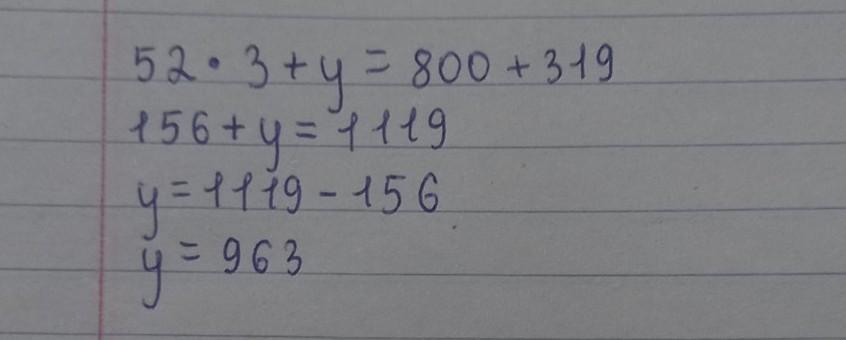 52 · 3 + y = 800 + 319
156 + y = 1119
y = 1119 - 156
y = 963